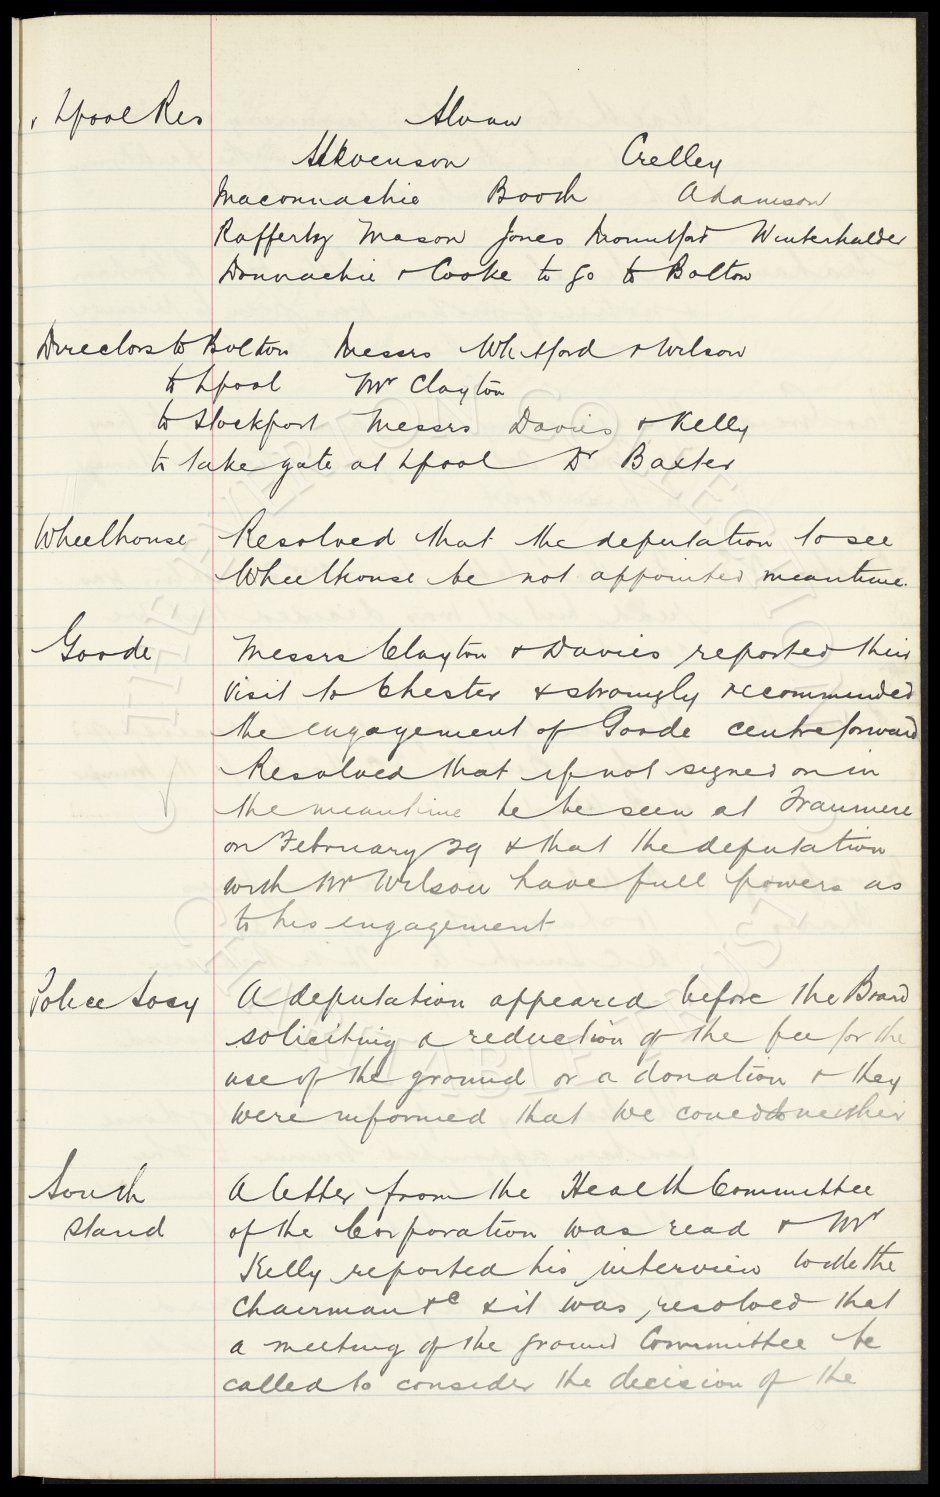 v Lpool Res Sloan
Stevenson Crelley
Maconnachie Booth Adamson
Rafferty Mason Jones Mountford Winterhalder
Donnachie & Cooke to go to Bolton
Directors to Bolton Messrs Whitford & Wilson
to Lpool Mr Clayton
to Stockport Messrs Davies & Kelly
to take gate at Lpool Dr Baxter
Wheelhouse Resolved that the deputation to see
Wheelhouse be not appointed meantime.
Goode Messrs Clayton & Davies reported their
visit to Chester & strongly recommended
the engagement of Goode centre forward
Resolved that if not signed on in
the meantime he be seen at Tranmere
on February 29 & that the deputation
with Mr Wilson have full powers as
to his engagement
Police Socy A deputation appeared before the Board
soliciting a reduction of the fee for the
use of the ground or a donation & they
were informed that we could do neither
South A letter from the Health Committee
Stand of the Corporation was read & Mr
Kelly reported his interview with the
Chairman &c & it was resolved that
a meeting of the ground Committee be
called to consider the decision of the
THE EVERTON COLLECTION